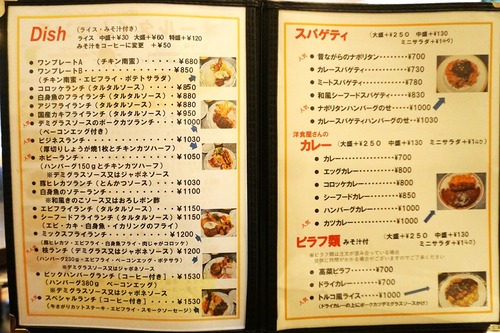 Dish (ライス・みそ汁付き)
ライス 中盛+¥30 大盛+¥60 特盛+¥120
みそ汁をコーヒーに変更 +¥50
ワンプレートA (チキン南蛮)・・・・・・・・¥680
ワンプレートB・・・・・・・・¥850
(チキン南蛮・エビフライ・ポテトサラダ)
コロッケランチ (タルタルソース)・・・¥850
白身魚のフライランチ (タルタルソース)・・・¥880
アジフライランチ (タルタルソース)・・・¥880
国産カキフライランチ (タルタルソース)・・・¥950
デミグラスソースのポークカツランチ・・・¥1000
(ベーコンエッグ付き)
ビジネスランチ・・・・・・・・¥1030
(厚切りしょうが焼1枚とチキンカツハーフ)
ホビーランチ・・・・・・・・¥1050
(ハンバーグ150gとチキンカツハーフ)
※デミグラスソース又はジャポネソース
豚ヒレカツランチ (とんかつソース)・・・¥1030
白身魚のソテーランチ・・・・・・・・¥1100
※和風きのこソース又はおろしポン酢
エビフライランチ (タルタルソース)・・・¥1150
シーフードフライランチ (タルタルソース)・・・¥1150
(エビ・カキ・白身魚・イカリングのフライ)
ミックスフライランチ・・・・・・・・¥1200
(豚ヒレカツ・エビフライ・白身魚フライ・肉じゃがコロッケ)
ランチ (デミグラス又はジャポネソース)・・・¥1200
(ハンバーグ230g・エビフライ・ベーコンエッグ・ポテサラ)
※デミグラスソース又はジャポネソース
ビックハンバーグランチ [コーヒー付き]・・・¥1530
(ハンバーグ380g ベーコンエッグ)
※デミグラスソース又はジャポネソース
スペシャルランチ [コーヒー付き]・・・¥1530
(牛さがりカットステーキ・エビフライ・スモークソーセージ)
スパゲティ (大盛+¥250 中盛+¥130
ミニサラダ+¥140)
昔ながらのナポリタン・・・・・・¥700
カレースパゲティ・・・・・・¥730
ミートスパゲティ・・・・・・¥780
和風シーフードスパゲティ・・・・・・¥830
ナポリタンハンバーグのせ・・・・・・¥1000
カレースパゲティハンバーグのせ・・・¥1030
洋食屋さんの
カレー (大盛+¥250 中盛+¥130 ミニサラダ+¥140)
カレー・・・・・・¥700
エッグカレー・・・・・・¥800
コロッケカレー・・・・・・¥800
シーフードカレー・・・・・・¥850
ハンバーグカレー・・・・・・¥1000
カツカレー・・・・・・¥1000
ピラフ類 みそ汁付 (大盛+¥250 中盛+¥130
ミニサラダ+¥140)
高菜ピラフ・・・・・・¥700
ドライカレー・・・・・・¥700
トルコ風ライス・・・・・・¥1000
(ドライカレーの上にポークカツデミグラスソースがけ)